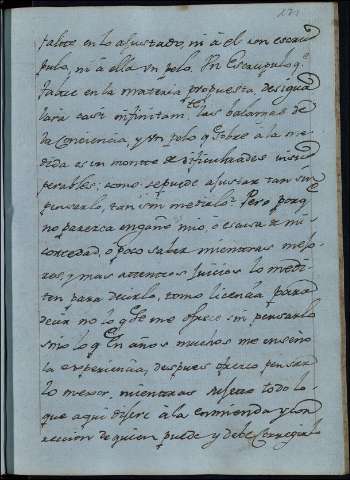 171
falte en lo ajustado, ni à él con escru
pulo, ni à ella un pelo. Un Escrupulo q.e
falte en la materia propuesta, desigua
lara casi infinitam.te las balanzas de
la Conciencia, y un pelo q. sobre à la me
dida es un monte de dificultades insu
perables; como se puede ajustar tan sin
pensarlo, tan sin medirlo? Pero porq.e
no parezca engaño mio, ò escusa de mi
cortedad, ò poco saber mientras mejo
res, y mas attentos Juicios lo medi
ten para decirlo, tomo licencia para
decir no lo q. se me ofrece sin pensarlo
sino lo q. En años muchos me enseño
la experiencia, despues ofrezco pensar
lo mejor, mientras sujeto todo lo
que aqui dijere à la enmienda y cor
reccion de quien puede y debe Corregirlo